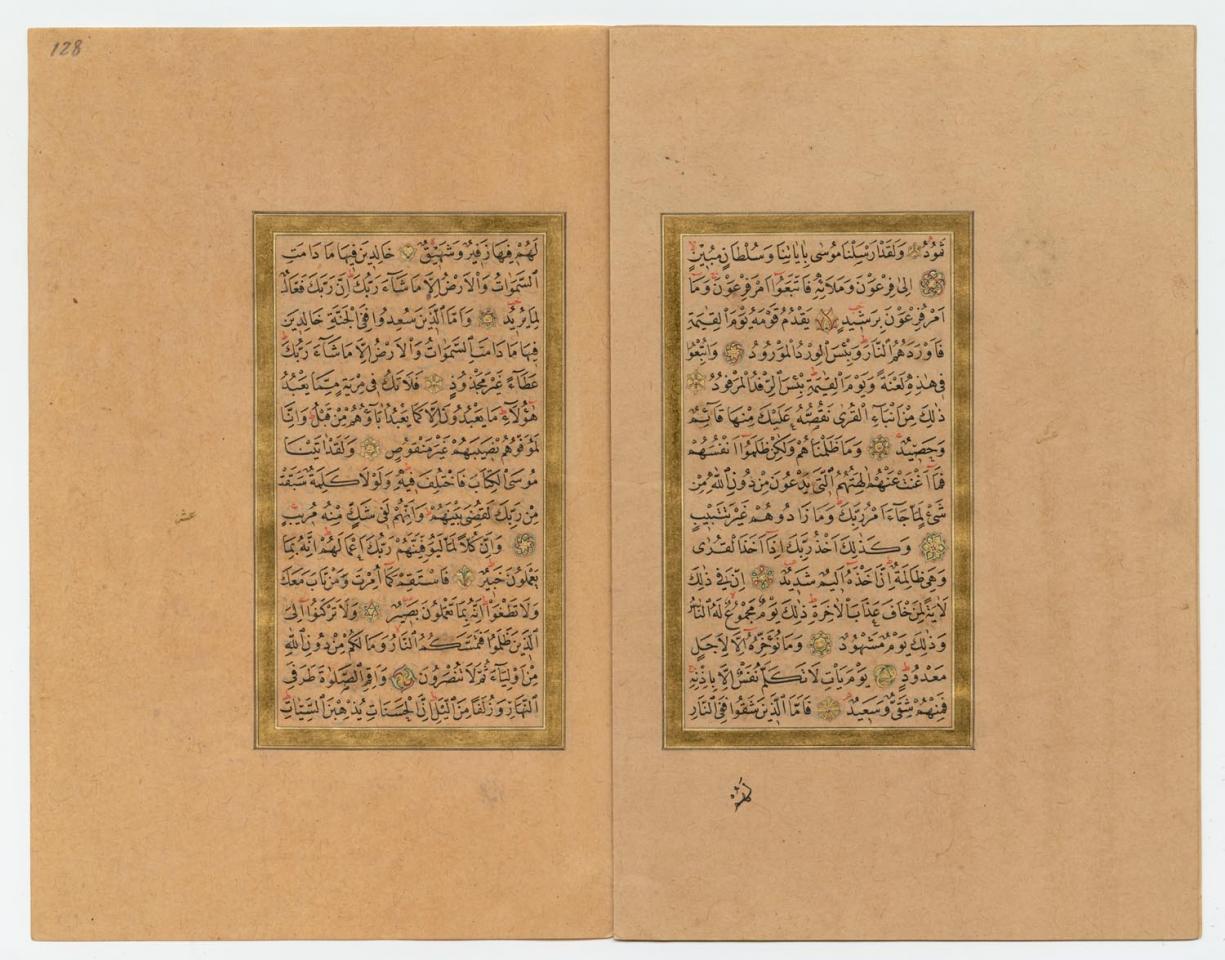 ثَمُودُ وَلَقَدْ اَرْسَلْنَا مُوسٰى بِاٰيَاتِنَا وَسُلْطَانٍ مُبٖينٍ
اِلٰى فِرْعَوْنَ وَمَلَا۬ئِهٖ فَاتَّبَعُٓوا اَمْرَ فِرْعَوْنَ وَمَٓا
اَمْرُ فِرْعَوْنَ بِرَشٖيدٍ يَقْدُمُ قَوْمَهُ يَوْمَ الْقِيٰمَةِ
فَاَوْرَدَهُمُ النَّارَ وَبِئْسَ الْوِرْدُ الْمَوْرُودُ وَاُتْبِعُوا
فٖى هٰذِهٖ لَعْنَةً وَيَوْمَ الْقِيٰمَةِ بِئْسَ الرِّفْدُ الْمَرْفُودُ
ذٰلِكَ مِنْ اَنْبَٓاءِ الْقُرٰى نَقُصُّهُ عَلَيْكَ مِنْهَا قَٓائِمٌ
وَحَصٖيدٌ وَمَا ظَلَمْنَاهُمْ وَلٰكِنْ ظَلَمُٓوا اَنْفُسَهُمْ
فَمَٓا اَغْنَتْ عَنْهُمْ اٰلِهَتُهُمُ الَّتٖى يَدْعُونَ مِنْ دُونِ اللّٰهِ مِنْ
شَىْءٍ لَمَّا جَٓاءَ اَمْرُ رَبِّكَ وَمَا زَادُوهُمْ غَيْرَ تَتْبٖيبٍ
وَكَذٰلِكَ اَخْذُ رَبِّكَ اِذَٓا اَخَذَ الْقُرٰى
وَهِىَ ظَالِمَةٌ اِنَّ اَخْذَهُٓ اَلٖيمٌ شَدٖيدٌ اِنَّ فٖى ذٰلِكَ
لَاٰيَةً لِمَنْ خَافَ عَذَابَ الْاٰخِرَةِ ذٰلِكَ يَوْمٌ مَجْمُوعٌ لَهُ النَّاسُ
وَذٰلِكَ يَوْمٌ مَشْهُودٌ وَمَا نُؤَخِّرُهُٓ اِلَّا لِاَجَلٍ
مَعْدُودٍ يَوْمَ يَاْتِ لَا تَكَلَّمُ نَفْسٌ اِلَّا بِاِذْنِهٖ
فَمِنْهُمْ شَقِىٌّ وَسَعٖيدٌ فَاَمَّا الَّذٖينَ شَقُوا فَفِى النَّارِ
لهم
128
لَهُمْ فٖيهَا زَفٖيرٌ وَشَهٖيقٌ خَالِدٖينَ فٖيهَا مَا دَامَتِ
السَّمٰوَاتُ وَالْاَرْضُ اِلَّا مَا شَٓاءَ رَبُّكَ اِنَّ رَبَّكَ فَعَّالٌ
لِمَا يُرٖيدُ وَاَمَّا الَّذٖينَ سُعِدُوا فَفِى الْجَنَّةِ خَالِدٖينَ
فٖيهَا مَا دَامَتِ السَّمٰوَاتُ وَالْاَرْضُ اِلَّا مَا شَٓاءَ رَبُّكَ
عَطَٓاءً غَيْرَ مَجْذُوذٍ فَلَا تَكُ فٖى مِرْيَةٍ مِمَّا يَعْبُدُ
هٰٓؤُلَٓاءِ مَا يَعْبُدُونَ اِلَّا كَمَا يَعْبُدُ اٰبَٓاؤُهُمْ مِنْ قَبْلُ وَاِنَّا
لَمُوَفُّوهُمْ نَصٖيبَهُمْ غَيْرَ مَنْقُوصٍ وَلَقَدْ اٰتَيْنَا
مُوسَى الْكِتَابَ فَاخْتُلِفَ فٖيهِ وَلَوْلَا كَلِمَةٌ سَبَقَتْ
مِنْ رَبِّكَ لَقُضِىَ بَيْنَهُمْ وَاِنَّهُمْ لَفٖى شَكٍّ مِنْهُ مُرٖيبٍ
وَاِنَّ كُلًّا لَمَّا لَيُوَفِّيَنَّهُمْ رَبُّكَ اَعْمَالَهُمْ اِنَّهُ بِمَا
يَعْمَلُونَ خَبٖيرٌ فَاسْتَقِمْ كَمَٓا اُمِرْتَ وَمَنْ تَابَ مَعَكَ
وَلَا تَطْغَوْا اِنَّهُ بِمَا تَعْمَلُونَ بَصٖيرٌ وَلَا تَرْكَنُٓوا اِلَى
الَّذٖينَ ظَلَمُوا فَتَمَسَّكُمُ النَّارُ وَمَا لَكُمْ مِنْ دُونِ اللّٰهِ
مِنْ اَوْلِيَٓاءَ ثُمَّ لَا تُنْصَرُونَ وَاَقِمِ الصَّلٰوةَ طَرَفَىِ
النَّهَارِ وَزُلَفًا مِنَ الَّيْلِ اِنَّ الْحَسَنَاتِ يُذْهِبْنَ السَّيِّپَاتِ